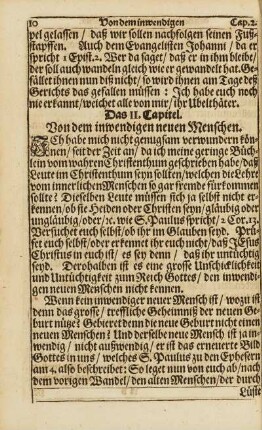 10 Von dem inwendigen Cap. 2.
pel gelassen / daß wir sollen nachfolgen seinen Fuß-
stapffen. Auch dem Evangelisten Johanni / da er
spricht 1 Epist. 2. Wer da saget / daß er in ihm bleibe /
der soll auch wandeln gleich wie er gewandelt hat. Ge-
fället ihnen nun diß nicht / so wird ihnen am Tage deß
Gerichts das gefallen müssen : Ich habe euch noch
nie erkannt / weichet alle von mir / ihr Ubelthäter.
Das II. Capitel.
Von dem inwendigen neuen Menschen.
Ich habe mich nicht gnugsam verwundern kön-
nen / seit der Zeit an / da ich meine geringe Büch-
lein vom wahren Christenthum geschrieben habe / daß
Leute im Christenthum seyn sollten / welchen die Lehre
vom innerlichen Menschen so gar fremde fürkommen
sollte? Dieselben Leute müssen sich ja selbst nicht er-
kennen / ob sie Heiden oder Christen seyn / gläubig oder
unglaubig / oder / rc. wie S. Paulus spricht / 2 Cor. 13.
Versuchet euch selbst / ob ihr im Glauben seyd. Prü-
fet euch selbst / oder erkennet ihr euch nicht / daß JEsus
Christus in euch ist / es sey denn / daß ihr untüchtig
seyd. Derohalben ist es eine grosse Unschicklichkeit
und Untüchtigkeit zum Reich Gottes / den inwendi-
gen neuen Menschen nicht kennen.
Wenn kein inwendiger neuer Mensch ist / wozu ist
denn das grosse / treffliche Geheimniß der neuen Ge-
burt nütze? Gebieret denn die neue Geburt nicht einen
neuen Menschen? Und derselbe neue Mensch ist ja in-
wendig / nicht außwendig / er ist das erneuerte Bild
Gottes in uns / welches S. Paulus zu den Ephesern
am 4. also beschreibet : So leget nun von euch ab / nach
dem vorigen Wandel / den alten Menschen / der durch
Lüste